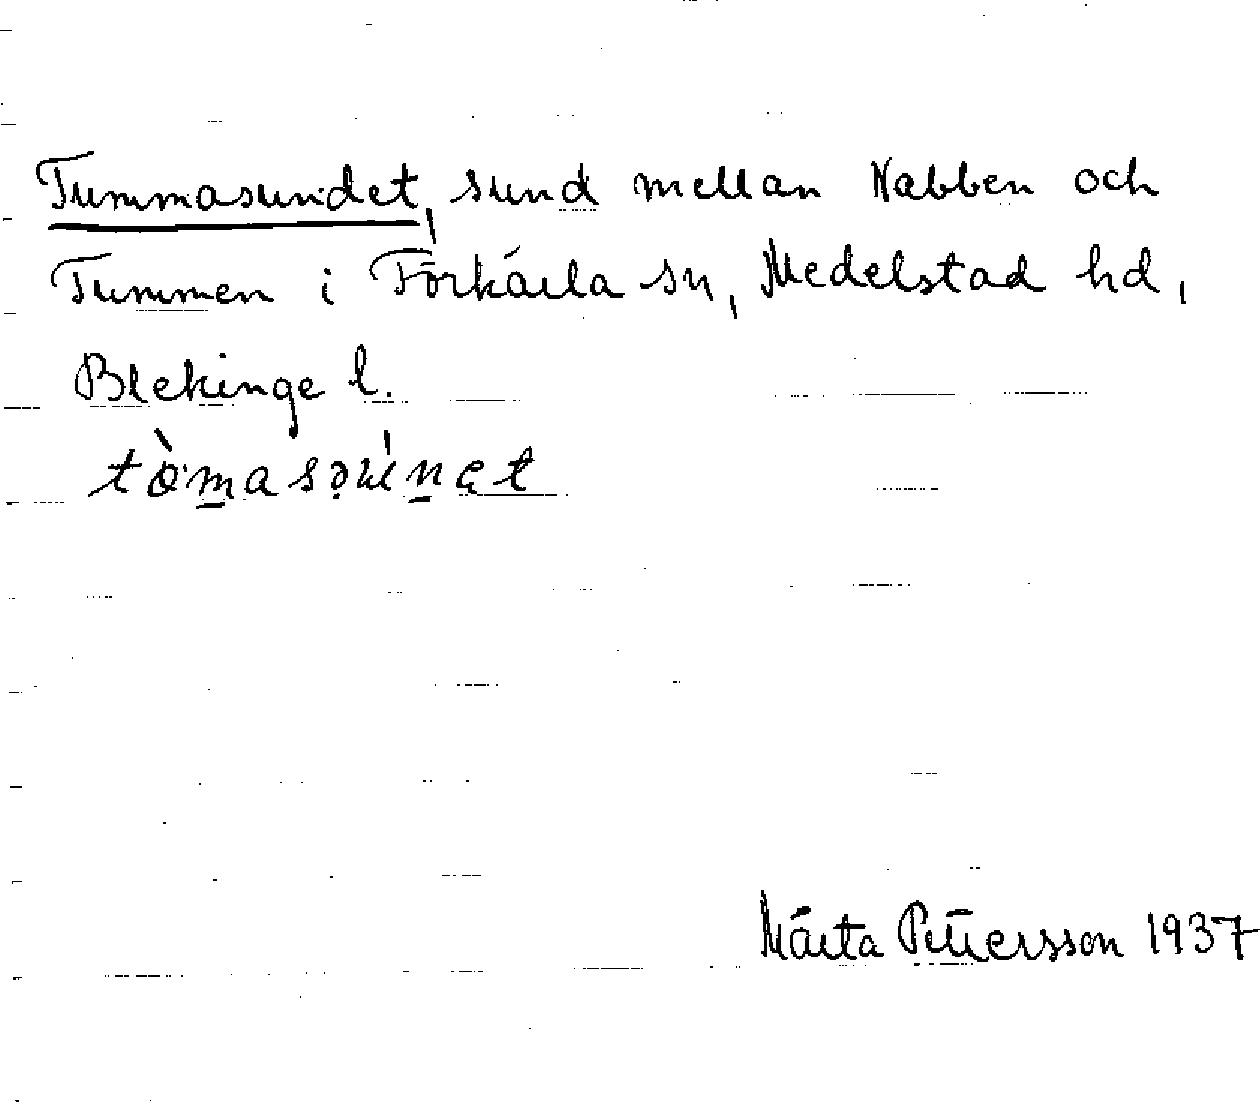 Tummasundet, sund mellan Nabben och
Tummen i Förkärla sn, Medelstad hd,
Blekinge l.
Märta Pettersson 1937